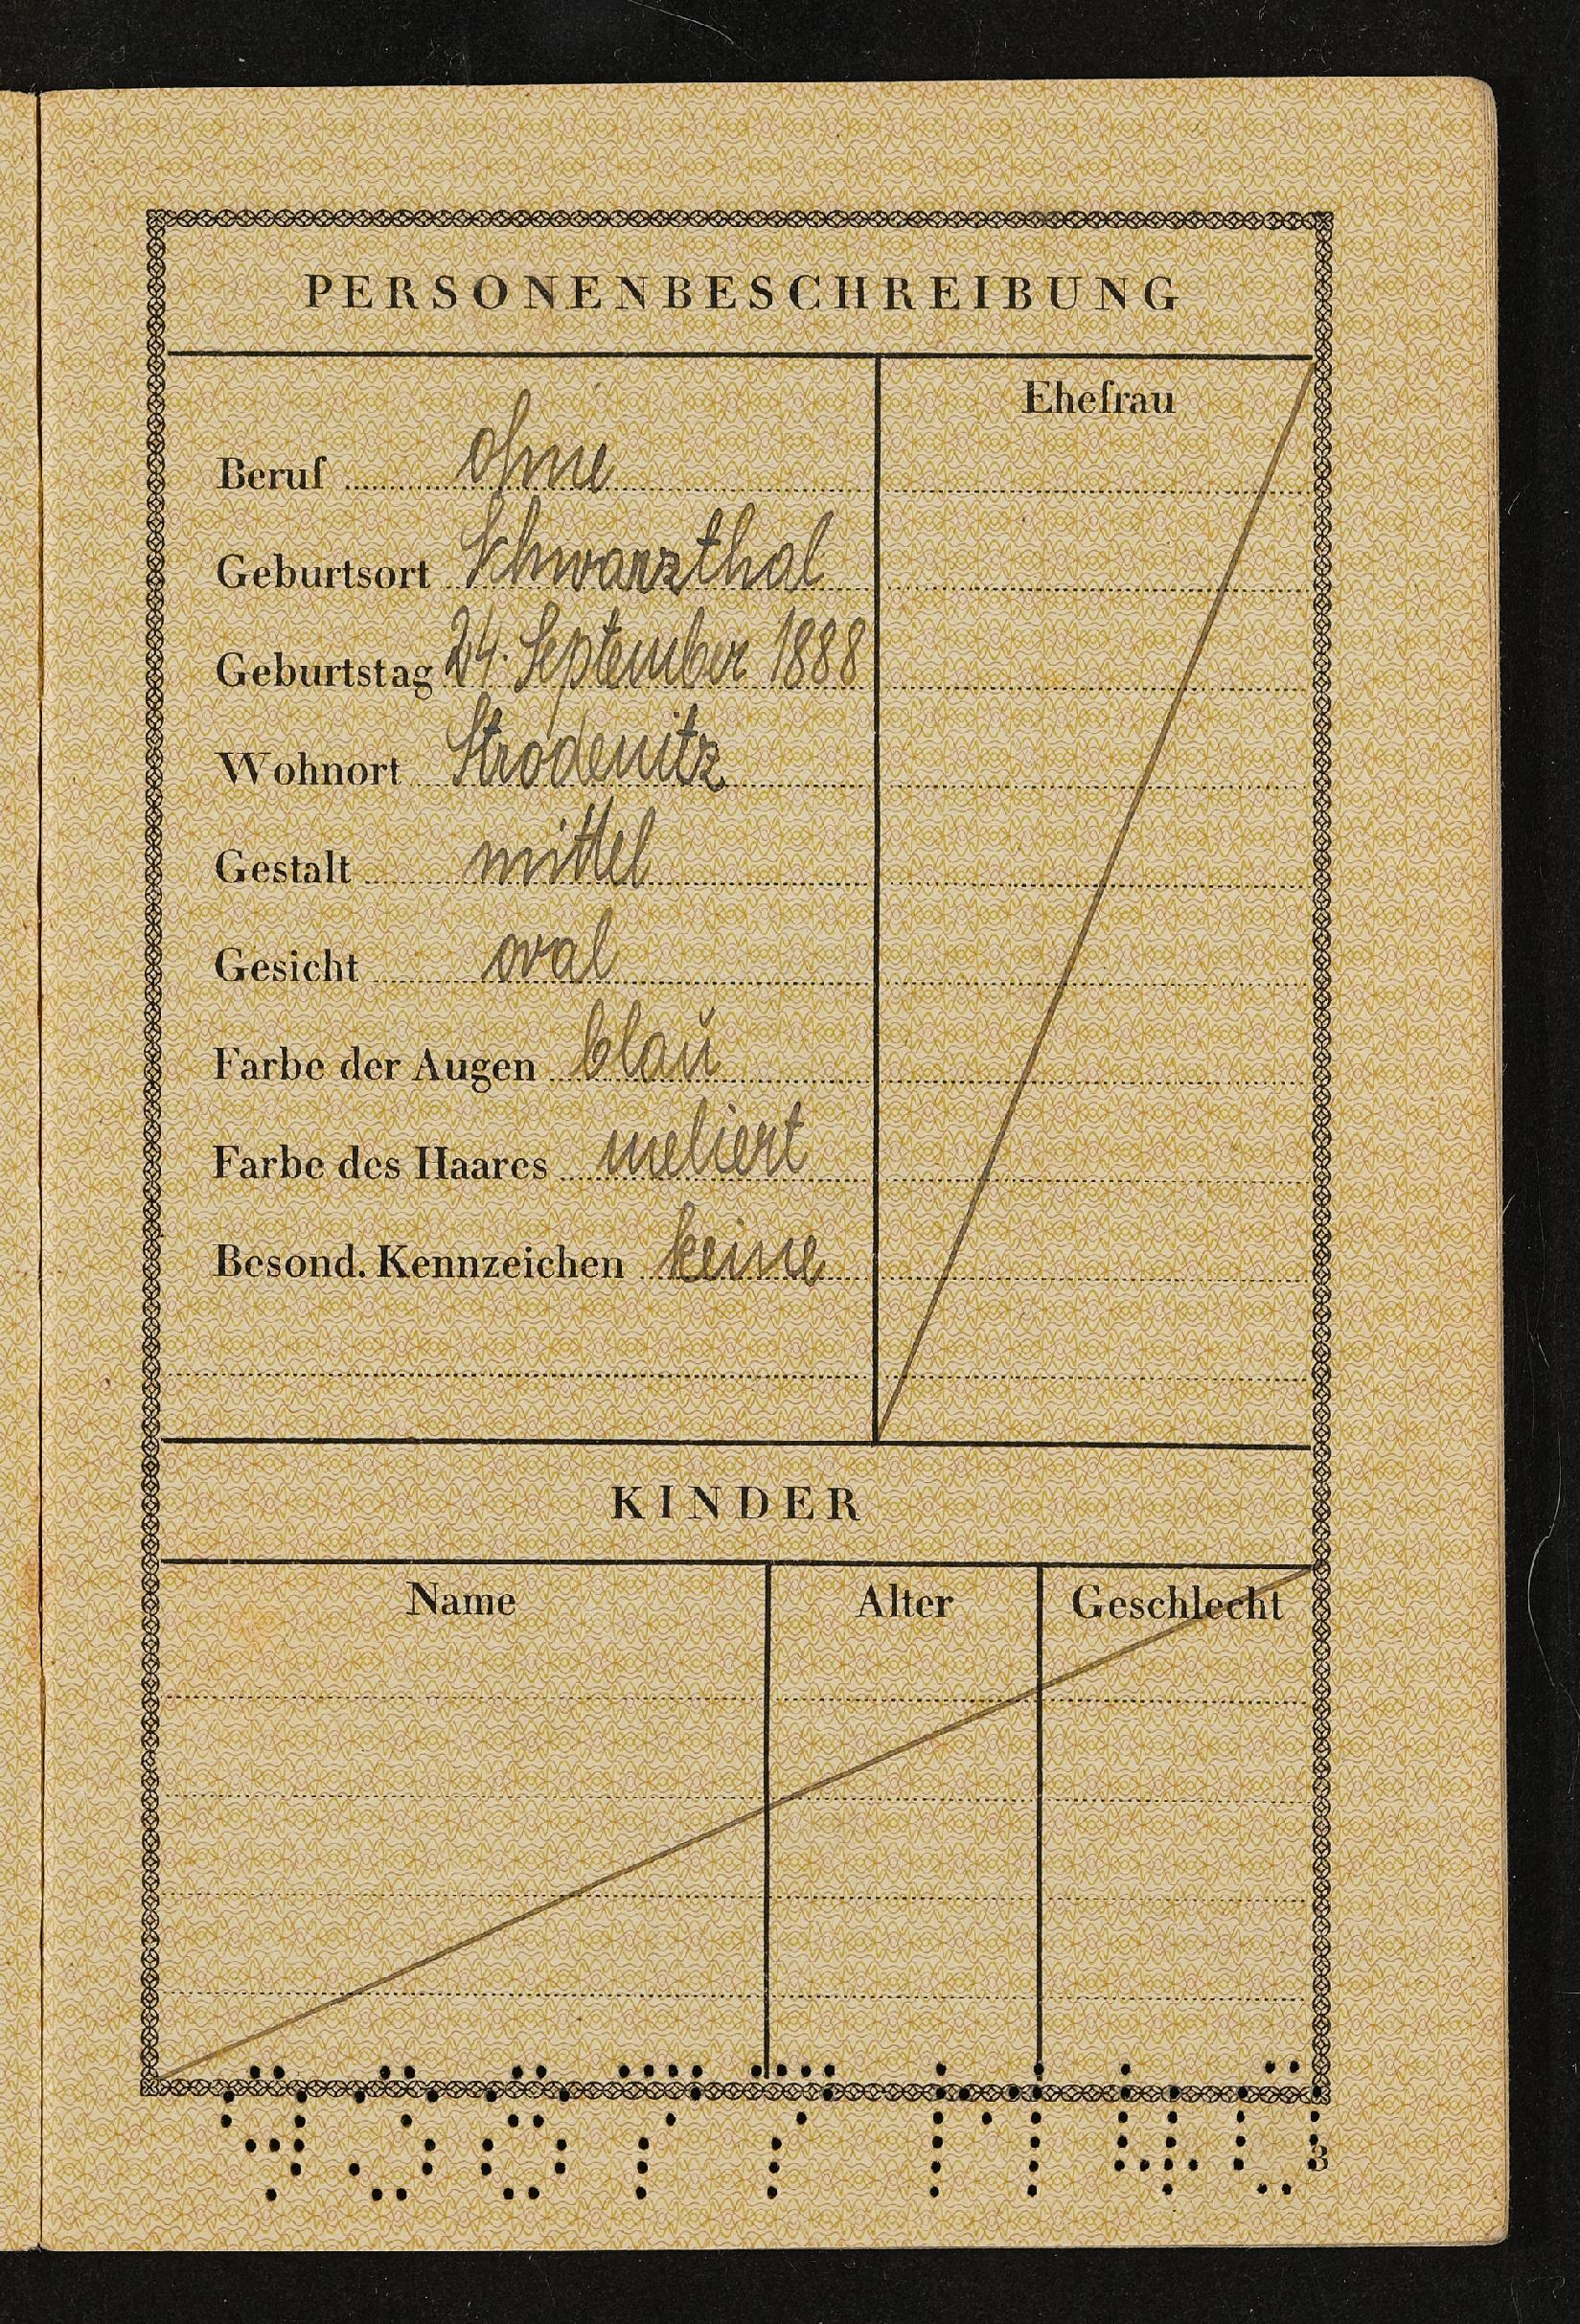 PERSONENBESCHREIBUNG
Ehefrau
Beruf ohne
Geburtsort Schwarzthal
Geburtstag 24. September 1888
Wohnort Strodenitz
Gestalt mittel
Gesicht oval
Farbe der Augen blau
Farbe des Haares meliert
Besond. Kennzeichen keine
KINDER
Name Alter Geschlecht
93877 M 40
3